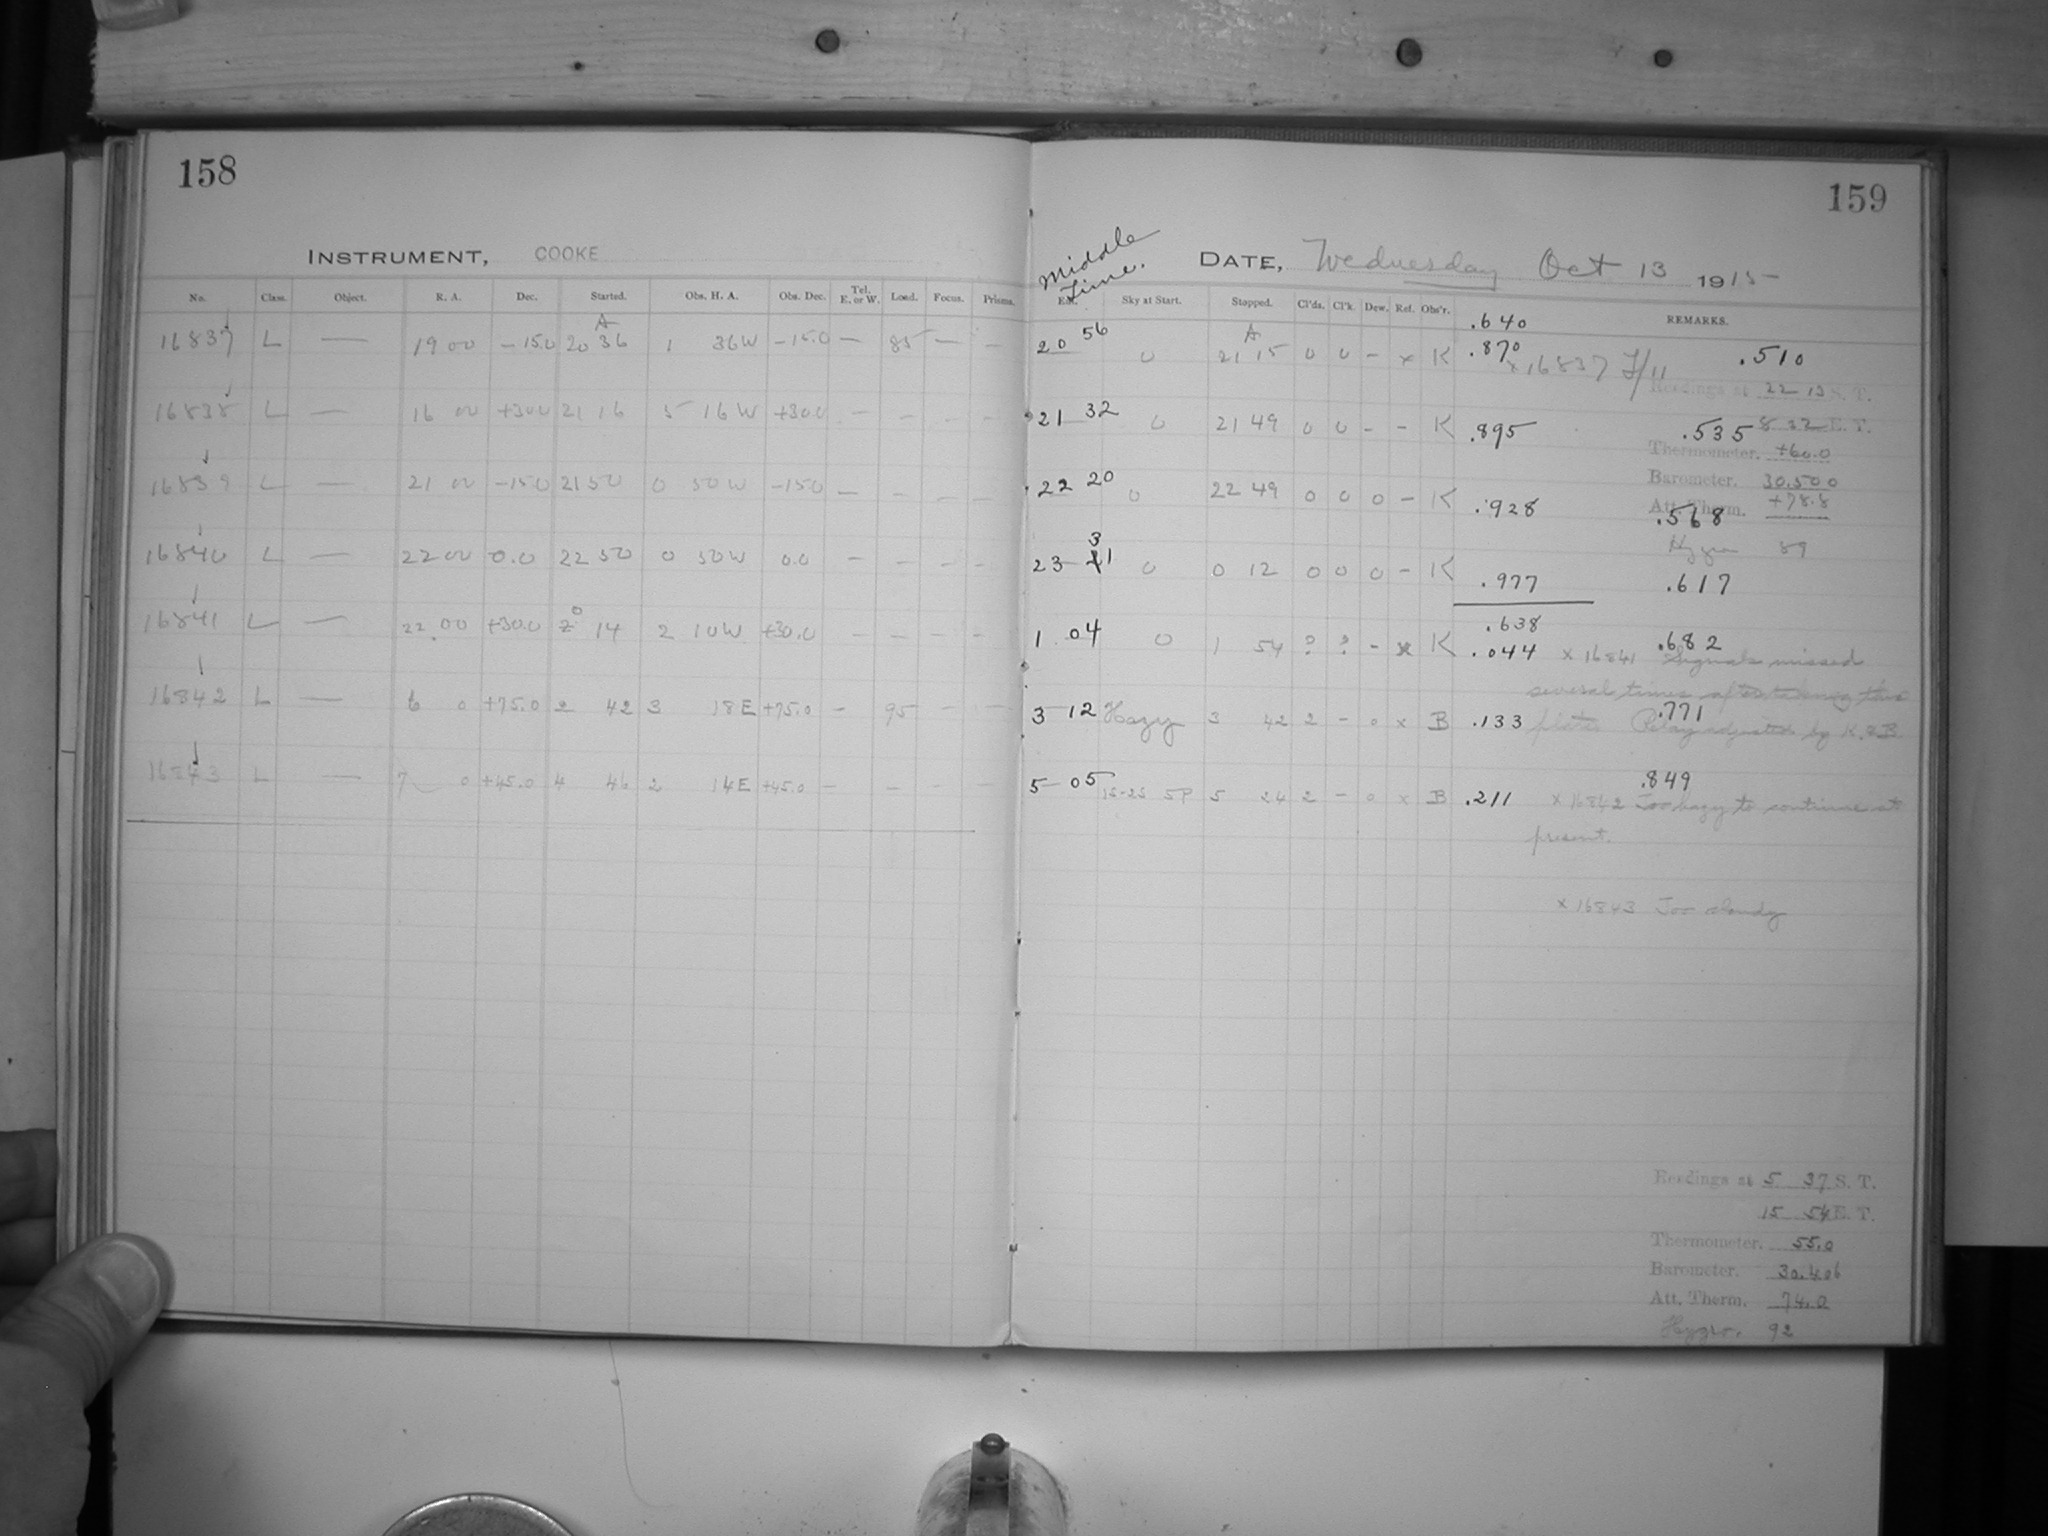 158
INSTRUMENT, COOKE
No. Class. Object. R. A. Dec. Started. Obs. H. A. Obs. Dec. Tel. E. or W. Load. Focus. Prisms.
16837 L — 19 00 −15.0 20 36 A 1 36W −15.0 — 85 — —
16838 L — 16 00 +30.0 21 16 5 16W +30.0 — — — —
16839 L — 21 00 −15.0 21 50 0 50W −15.0 — — — —
16840 L — 22 00 0.0 22 50 0 50W 0.0 — — — —
16841 L — 22 00 +30.0 0 14 2 10W +30.0 — — — —
16842 L — 6 0 +75.0 2 42 3 18E +75.0 — 95 — —
16843 L — 7 0 +45.0 4 46 2 14E +45.0 — — — —
159
Middle Time.
DATE, Wednesday Oct 13 1915
Sky at Start. Stopped. Cl'ds. Cl'k. Dew. Ref. Obs'r. REMARKS.
.640
20 56 0 21 15 A 0 0 - x K .870 x 16837 F/11 .510
Readings at 22 13 S. T.
21 32 0 21 49 0 0 - - K .895 .535 8 32 E. T.
Thermometer. +60.0
Barometer. 30.500
22 20 0 22 49 0 0 0 - K .928 Att. Therm. +78.8
.568
Hygro 59
23 31 0 0 12 0 0 0 - K .977 .617
.638
1 04 0 1 54 ? ? - x K .044 .682
x 16841 Signals missed
several times after taking this
plate. Relay adjusted by K. & B.
3 12 Hazy 3 42 2 - 0 x B .133 .771
5 05 15-25 SP 5 24 2 - 0 x B .211 .849
x 16842 Too hazy to continue at
present.
x 16843 Too cloudy
Readings at 5 37 S. T.
15 54 E. T.
Thermometer. 55.0
Barometer. 30.406
Att. Therm. 74.0
Hygro. 92